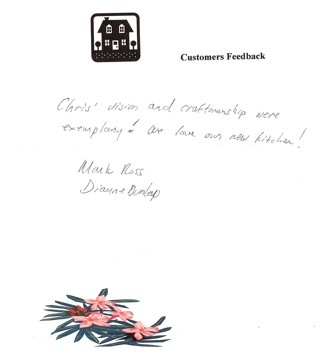 Customers Feedback
Chris' vision and craftmanship were
exemplary! We love our new kitchen!
Mark Ross
Dianne Dunlap